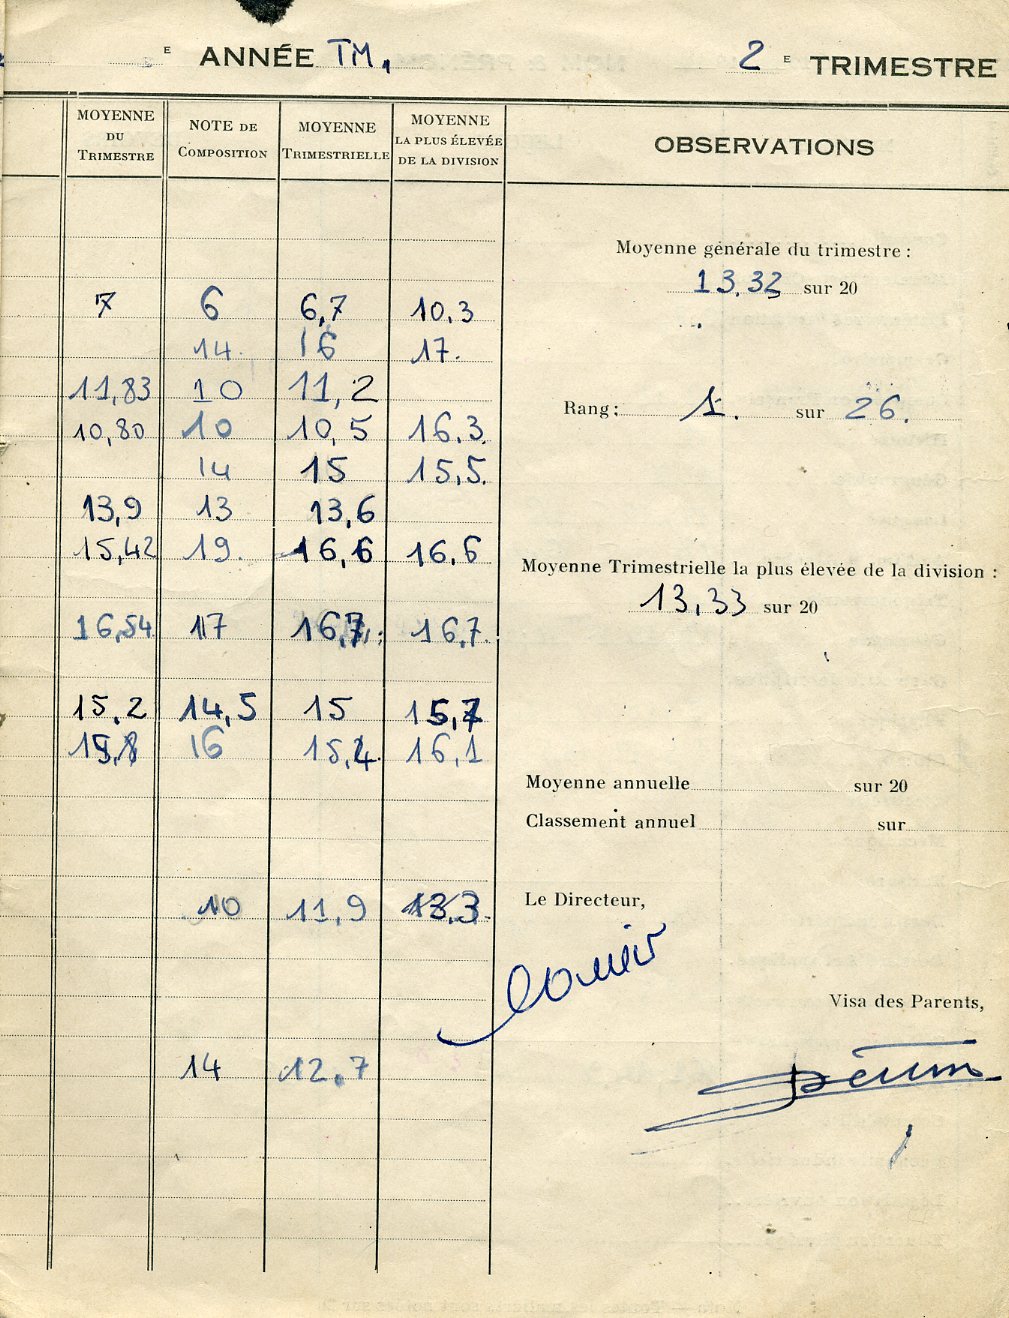 E ANNÉE TM. 2 E TRIMESTRE
MOYENNE DU TRIMESTRE NOTE DE COMPOSITION MOYENNE TRIMESTRIELLE MOYENNE LA PLUS ÉLEVÉE DE LA DIVISION OBSERVATIONS
Moyenne générale du trimestre :
13,33 sur 20
7 6 6,7 10.3
14. 16 17.
11,83 10 11,2
Rang : 1. sur 26.
10,80 10 10,5 16.3.
14 15 15,5.
13,9 13 13,6
15,42 19. 16,6 16,6
Moyenne Trimestrielle la plus élevée de la division :
13,33 sur 20
16,54 17 16,7 16,7.
15,2 14,5 15 15,7
15,8 16 15,4 16,1
Moyenne annuelle sur 20
Classement annuel sur
10 11,9 13,3.
Le Directeur,
Visa des Parents,
14 12,7